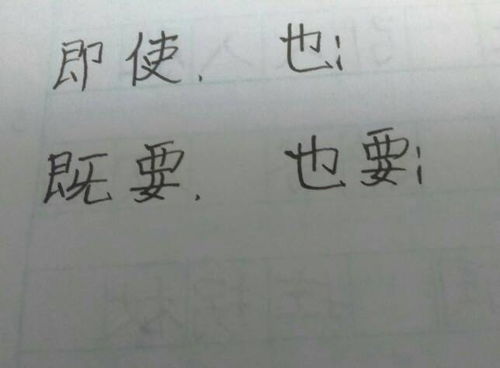 即使. 也;
既要. 也要;